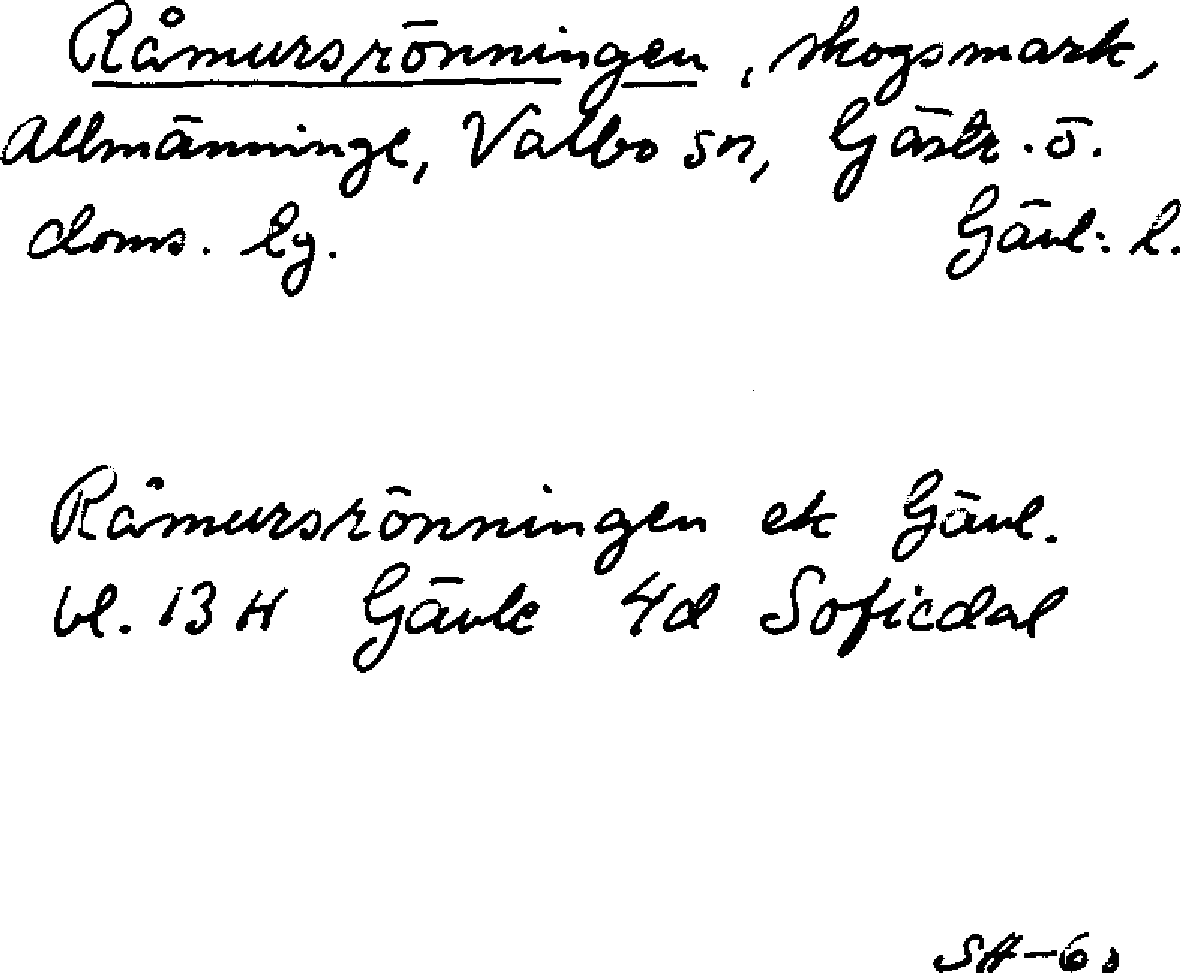 Råmursrönningen, skogsmark,
Allmänninge, Valbo sn, Gästr. ö.
doms. lg. Gävl: l.
Råmursrönningen ek Gävl.
bl. 13 H Gävle 4d Sofiedal